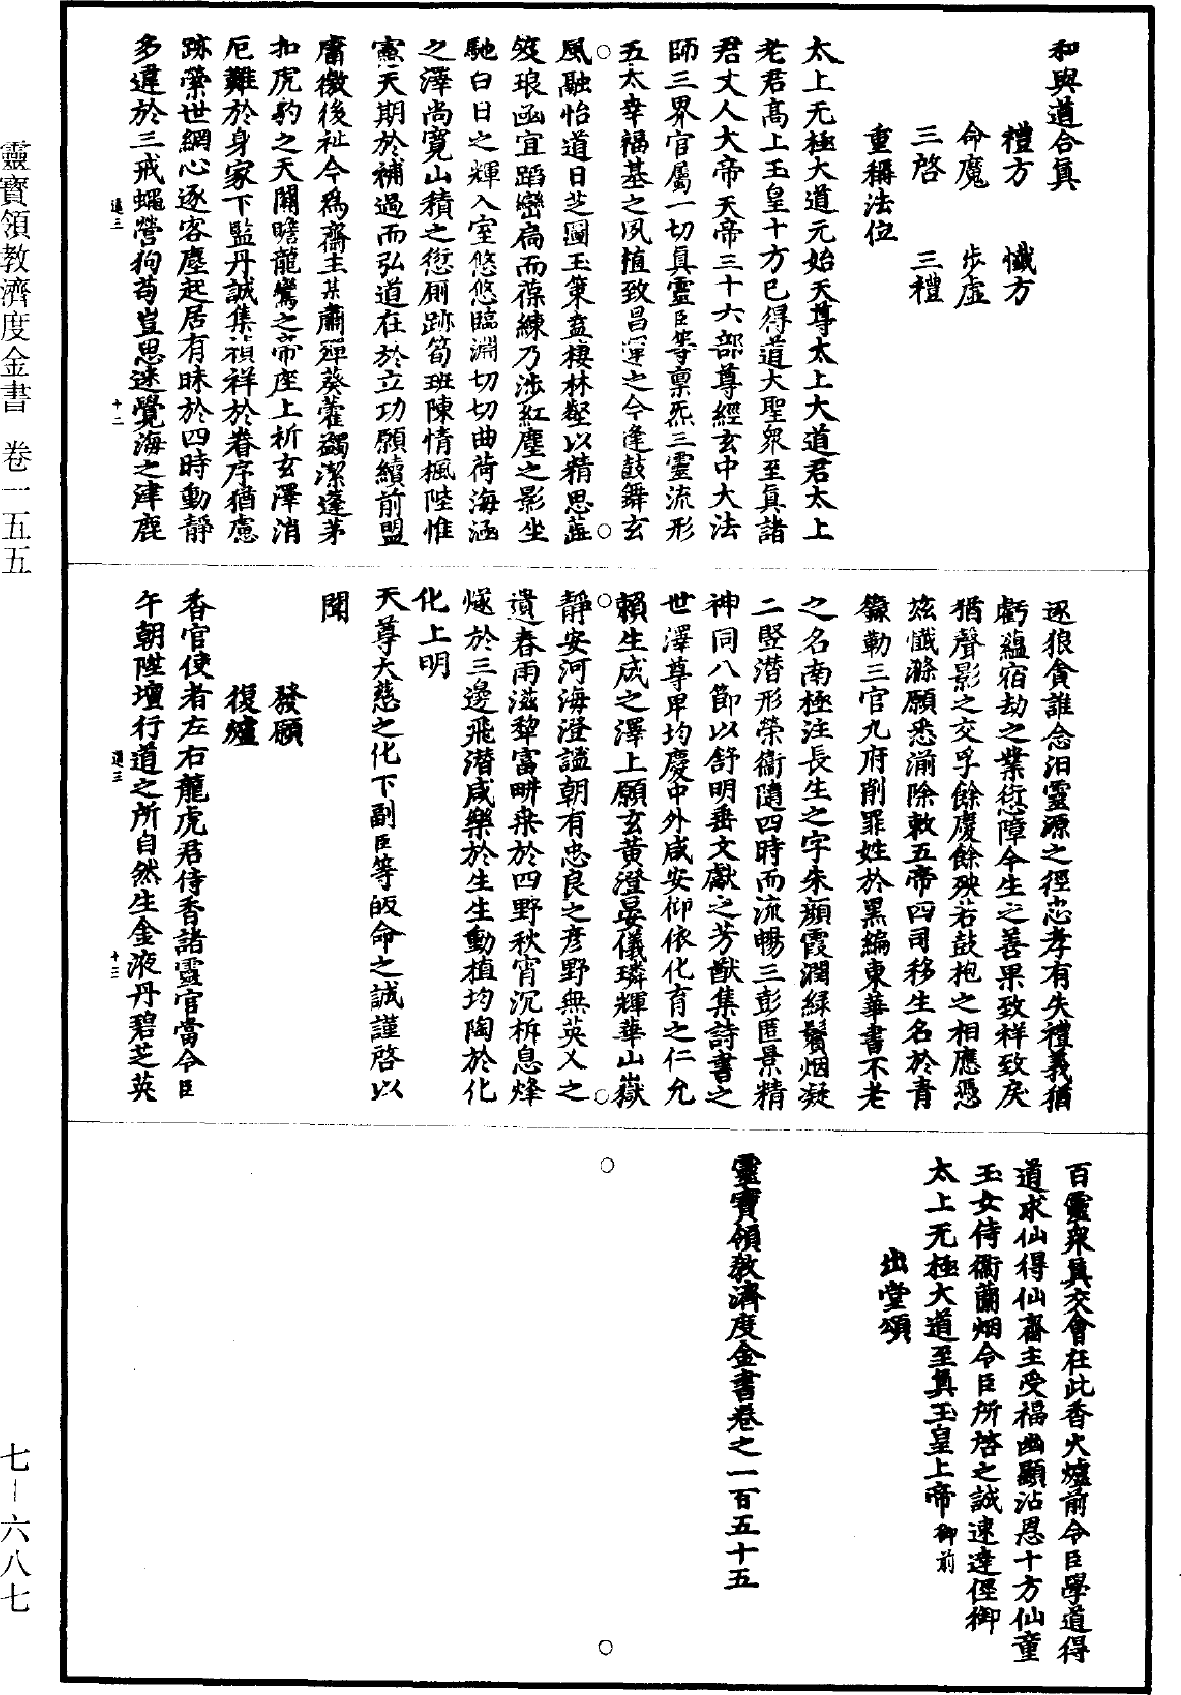 和與道合眞
禮方　懺方
命魔　步虛
三啓　三禮
重稱法位
太上无極大道元始天尊太上大道君太上
老君高上玉皇十方已得道大聖衆至眞諸
君丈人大帝天帝三十六部尊經玄中大法
師三界官屬一切眞靈臣等禀炁三靈流形
五太幸福基之夙植致昌運之今逢鼓舞玄
風融怡道日芝圖玉策益棲林壑以精思蘂
笈琅函宜蹈巒扃而葆練乃涉紅塵之影坐
馳白日之輝入室悠悠臨淵切切曲荷海涵
之澤尚寬山積之愆厠跡筍班陳情楓陛惟
憲天期於補過而弘道在於立功願續前盟
庸徼後祉今爲齋主某肅殫葵藿蠲潔蓬茅
扣虎豹之天關瞻龍鸞之帝座上祈玄澤消
厄難於身家下監丹誠集禎祥於眷序猶慮
跡縈世網心逐客塵起居有昧於四時動靜
多違於三戒蠅營狗苟豈思迷覺海之津鹿
逐狼貪誰念汨靈源之徑忠孝有失禮義猶
虧蘊宿劫之業愆障今生之善果致祥致戾
猶聲影之交孚餘慶餘殃若鼓抱之相應慿
兹懺滌願悉湔除敕五帝四司移生名於青
籙勒三官九府削罪姓於黑編東華書不老
之名南極注長生之字朱顔霞潤綠鬢烟凝
二竪潛形榮衛隨四時而流暢三彭匿景精
神同八節以舒明垂文獻之芳猷集詩書之
世澤尊卑均慶中外咸安仰依化育之仁允
賴生成之澤上願玄黄澄晏儀璘輝華山嶽
靜安河海澄謐朝有忠良之彦野無英乂之
遺春雨滋犂富畊耒於四野秋宵沉柝息烽
燧於三邊飛潛咸樂於生生動植均陶於化
化上明
天尊大慈之化下副臣等皈命之誠謹啓以
聞
發願
復爐
香官使者左右龍虎君侍香諸靈官當令臣
午朝陞壇行道之所自然生金液丹碧芝英
百靈衆眞交會在此香火爐前令臣學道得
道求仙得仙齋主受福幽顯沾恩十方仙童
玉女侍衛蘭烟令臣所啓之誠速達俓御
太上无極大道至眞玉皇上帝御前
出堂頌
靈寶領教濟度金書卷之一百五十五
靈寶領教濟度金書　卷一五五
七-六八七